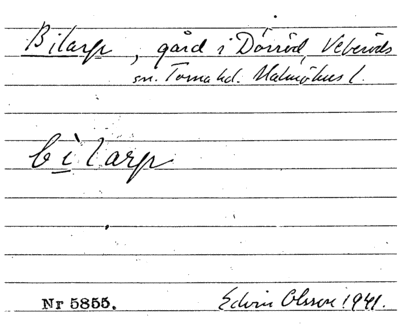 Bilarp, gård i Dörröd, Veberöds
sn. Torna hd. Malmöhus l.
bìlarp
Nr 5855.
Edvin Olsson 1941.